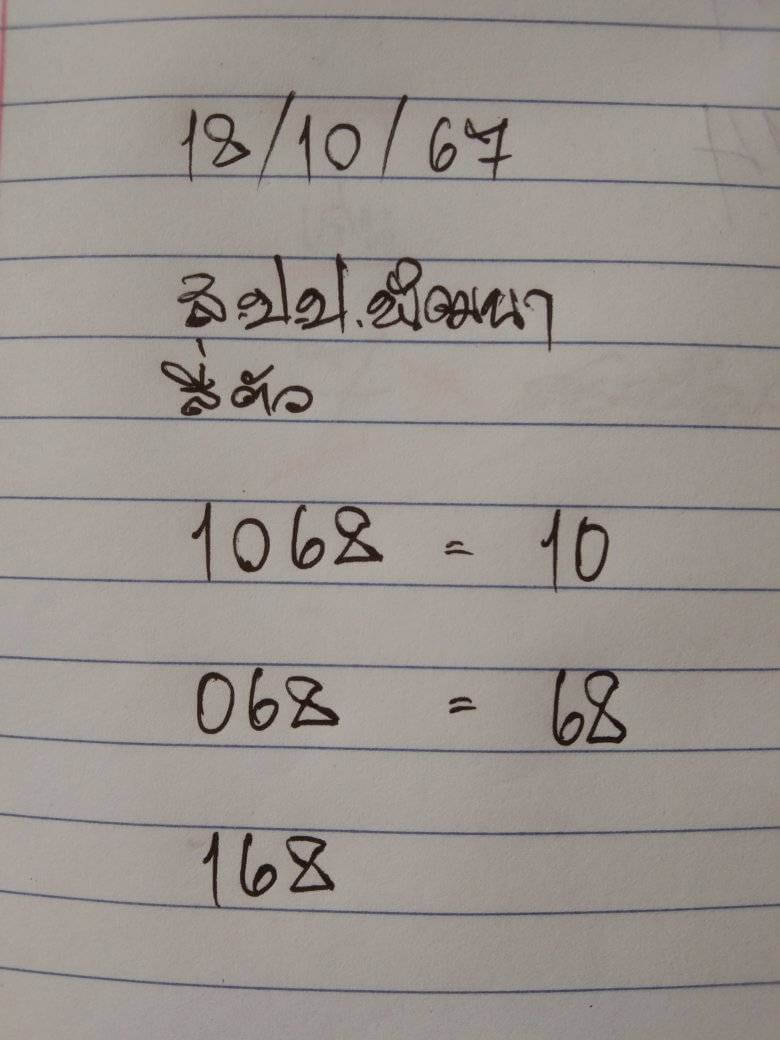 18/10/67
ส.ป.ป.พัฒนา
สี่ตัว
1068 = 10
068 = 68
168